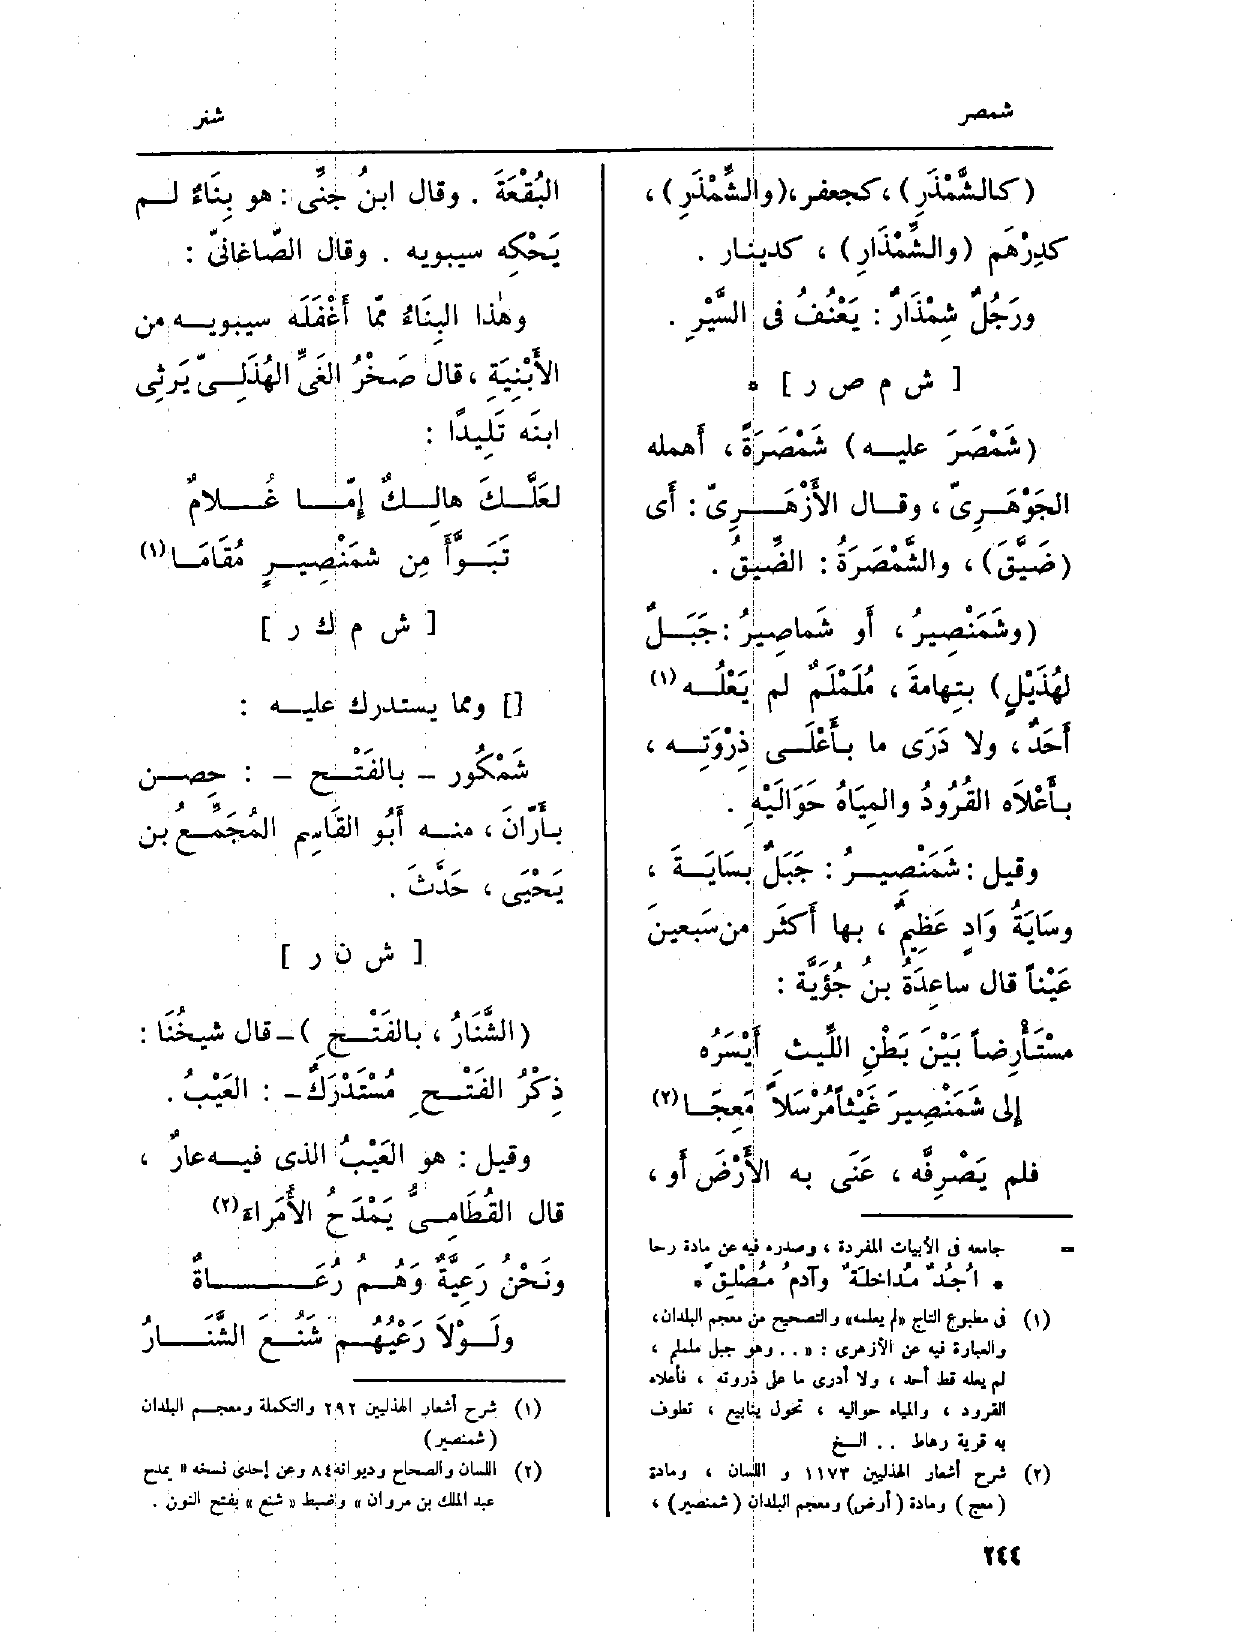 شمصر
شنر
(كالشَّمْذَرِ)، كجعفر، (والشِّمْذَرِ)،
كدِرْهَم (والشِّمْذَارِ) ، كدينار .
ورَجُلٌ شِمْذَارٌ : يَعْنُفُ فى السَّيْرِ .
[ ش م ص ر ] *
(شَمْصَرَ عليـــه) شَمْصَرَةً ، أهمله
الجَوْهَرِىّ ، وقــال الأَزْهَــرِىّ : أى
(ضَيَّقَ)، والشَّمْصَرَةُ : الضِّيقُ .
(وشَمَنْصِيرُ ، أو شَماصِيرُ : جَبَــلٌ
لهُذَيْلٍ) بتِهامَةَ ، مُلَمْلَمٌ لم يَعْلُــه(١)
أَحَدٌ ، ولا دَرَى ما بـأَعْلَــى ذِرْوَتِــه ،
بـأَعْلاَه القُرُودُ والمِيَاهُ حَوَالَيْهِ .
وقيل : شَمَنْصِيــرُ : جَبَلٌ بسَايَــةَ ،
وسَايَةُ وَادٍ عَظِيمٌ ، بها أكثَر من سَبعينَ
عَيْناً قال ساعِدَةُ بنُ جُؤَيَّة :
مستَأْرِضاً بَيْنَ بَطْنِ اللَّيث أَيْسَرُه
إلى شَمَنْصِيرَ غَيْثاً مُرْسَلاً مَعِجَــا(٢)
فلم يَصْرِفْه ، عَنَى به الأَرْضَ أو ،
= جامعه فى الأبيات المفردة ، وصدره فيه عن مادة رحا
* أجُدٌ مُداخلَةٌ وآدمُ مُصْلِقٌ *
(١) فى مطبوع التاج «لم يعلمه» والتصحيح من معجم البلدان،
والعبارة فيه عن الأزهرى : « . . وهو جبل ململم ،
لم يعله قط أحد ، ولا أدرى ما على ذروته ، فأعلاه
القرود ، والمياه حواليه ، تحول ينابيع ، تطوف
به قرية رهاط . . الــخ
(٢) شرح أشعار الهذليين ١١٧٣ و اللسان ، ومادة
(معج) ومادة (أرض) ومعجم البلدان (شمنصير) ،
البُقْعَةَ . وقال ابنُ جِنِّى : هو بِنَاءٌ لــم
يَحْكِه سيبويه . وقال الصّاغانىّ :
وهٰذا البِنَاءُ مّا أَغْفَلَه سيبويــه من
الأَبْنِيَةِ ، قال صَخْرُ الغَىِّ الهُذَلِــىّ يَرثِى
ابنَه تَلِيدًا :
لعَلَّــكَ هالِــكٌ إمّــا غُــلامٌ
تَبَــوَّأَ مِن شمَنْصِيــرٍ مُقَامَــا(١)
[ ش م ك ر ]
[] ومما يستدرك عليــه :
شَمْكُور – بالفَتْــح – : حِصــن
بأَرّانَ ، منــه أَبُو القَاسِم المُجَمِّــعُ بن
يَحْيَى ، حَدَّثَ .
[ ش ن ر ]
(الشَّنَارُ ، بالفَتْــحِ ) – قال شيخُنَا :
ذِكْرُ الفَتْــحِ مُسْتَدْرَكٌ – : العَيْبُ .
وقيل : هو العَيْبُ الذى فيــه عارٌ ،
قال القُطَامِــىُّ يَمْدَحُ الأُمَراء(٢)
ونَحْنُ رَعِيَّةٌ وَهُــم رُعَـــــاةٌ
ولَــوْلاَ رَعْيُهُــم شَنُــعَ الشَّنَــارُ
(١) شرح أشعار الهذليين ٢٩٢ والتكملة ومعجــم البلدان
(شمنصير)
(٢) اللسان والصحاح وديوانه ٨٤ وعن إحدى نسخه « يمدح
عبد الملك بن مروان » وضبط « شنع » بفتح النون .
٢٤٤